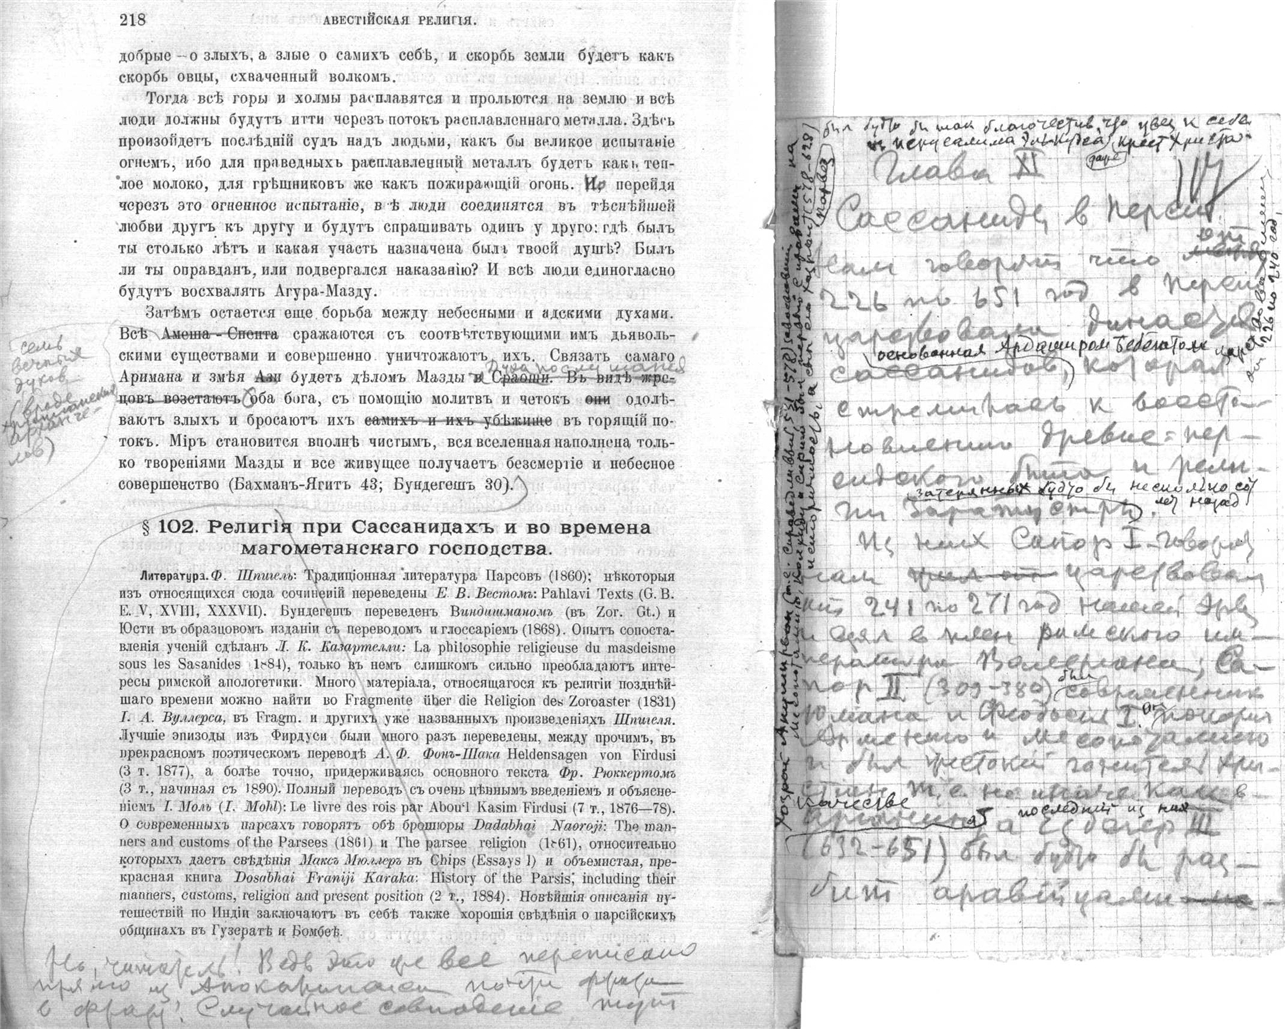 218
АВЕСТІЙСКАЯ РЕЛИГІЯ.
добрые — о злыхъ, а злые о самихъ себѣ, и скорбь земли будетъ какъ
скорбь овцы, схваченный волкомъ.
Тогда всѣ горы и холмы расплавятся и прольются на землю и всѣ
люди должны будутъ итти черезъ потокъ расплавленнаго металла. Здѣсь
произойдетъ послѣдній судъ надъ людьми, какъ бы великое испытаніе
огнемъ, ибо для праведныхъ расплавленный металлъ будетъ какъ теп-
лое молоко, для грѣшниковъ же какъ пожирающій огонь. Но перейдя
черезъ это огненное испытаніе, всѣ люди соединятся въ тѣснѣйшей
любви другъ къ другу и будутъ спрашивать одинъ у друго: гдѣ былъ
ты столько лѣтъ и какая участь назначена была твоей душѣ? Былъ
ли ты оправданъ, или подвергался наказанію? И всѣ люди единогласно
будутъ восхвалять Агура-Мазду.
Затѣмъ остается еще борьба между небесными и адскими духами.
Всѣ Амеша-Спента сражаются съ соотвѣтствующими имъ дьяволь-
скими существами и совершенно уничтожаютъ ихъ. Связать самаго
Аримана и змѣя Ази будетъ дѣломъ Мазды и Сраоши. Въ видѣ жре-
цовъ возстаютъ оба бога, съ помощію молитвъ и четокъ они одолѣ-
ваютъ злыхъ и бросаютъ ихъ самихъ и ихъ убѣжище въ горящій по-
токъ. Міръ становится вполнѣ чистымъ, вся вселенная наполнена толь-
ко твореніями Мазды и все живущее получаетъ безсмертіе и небесное
совершенство (Бахманъ-Ягитъ 43; Бундегешъ 30).
семь
вечных
духов
(вроде
христианских
арханге-
лов)
§ 102. Религія при Сассанидахъ и во времена
магометанскаго господства.
Литература. Ф. Шпигель: Традиціонная литература Парсовъ (1860); нѣкоторыя
изъ относящихся сюда сочиненій переведены Е. В. Вестомъ: Pahlavi Texts (G. B.
E. V, XVIII, XXXVII). Бундегешъ переведенъ Виндишманомъ (въ Zor. Gt.) и
Юсти въ образцовомъ изданіи съ переводомъ и глоссаріемъ (1868). Опытъ сопоста-
вленія ученій сдѣланъ Л. К. Казартелли: La philosophie religieuse du masdeisme
sous les Sasanides 1884), только въ немъ слишкомъ сильно преобладаютъ инте-
ресы римской апологетики. Много матеріала, относящагося къ религіи позднѣй-
шаго времени можно найти во Fragmente über die Religion des Zoroaster (1831)
І. А. Вуллерса, въ Fragm. и другихъ уже названныхъ произведеніяхъ Шпигеля.
Лучшіе эпизоды изъ Фирдуси были много разъ переведены, между прочимъ, въ
прекрасномъ поэтическомъ переводѣ А. Ф. Фонъ-Шака Heldensagen von Firdusi
(3 т. 1877), а болѣе точно, придерживаясь основного текста Фр. Рюккертомъ
(3 т., начиная съ 1890). Полный переводъ съ очень цѣннымъ введеніемъ и объясне-
ніемъ І. Моль (I. Mohl): Le livre des rois par Abou'l Kasim Firdusi (7 т., 1876—78).
О современныхъ парсахъ говорятъ обѣ брошюры Dadabhai Naoroji: The man-
ners and customs of the Parsees (1861) и The parsee religion (1861), относительно
которыхъ даетъ свѣдѣнія Максъ Мюллеръ въ Chips (Essays I) и объемистая, пре-
красная книга Dosabhai Franiji Karaka: History of the Parsis, including their
manners, customs, religion and present position (2 т., 1884). Новѣйшія описанія пу-
тешествій по Индіи заключаютъ въ себѣ также хорошія свѣдѣнія о парсійскихъ
общинахъ въ Гузератѣ и Бомбеѣ.
Но, читатель! Ведь это уже все переписано
прямо из Апокалипсиса почти фраза
в фразу. Случайное совпадение тут
был будто бы так благочестив, что увез к себе
из Иерусалима крест Христа
Глава XI
Сассаниды в Персии.
Нам говорят что от
226 по 651 год в Персии
царствовала династия
основанная Ардаширом Бабеганом
сассанидов, которая
стремилась к восста-
новлению древне-пер-
сидского быта и рели-
затерянных будто бы несколько сот
лет назад
гии Заратустры.
Из них Сапор I-говорят
нам царствовал
от 241 по 271 год нашей эры
и взял в плен римского им-
ператора Валериана; Са-
пор II (309-380) был современник
Юлиана и Феодосия I. Он покорил
Армению и Месопотамию
и был жестокий гонитель хри-
стиан
качестве
ариан
а последний из них
Ездегер III
(632-651) был будто бы раз-
бит аравийцами